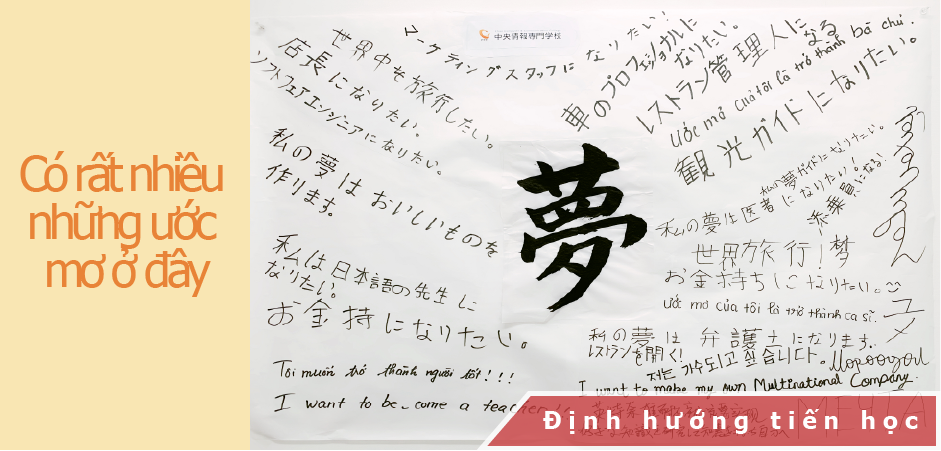 Có rất nhiều
những ước
mơ ở đây
中央情報専門学校
マーケティングスタッフになりたい!
世界中を旅行したい。
店長になりたい。
ソフトウェアエンジニアになりたい。
私の夢はおいしいものを
作ります。
私は日本語の先生に
なりたい。
お金持になりたい。
Tôi muốn trở thành người tốt!!!
I want to be come a teacher
夢
車のプロフェッショナルに
なりたい。
レストラン管理人になる
ước mơ của tôi là trở thành bà chủ.
観光ガイドになりたい。
私の夢ガイドになりたい。
私の夢は医者になりたい!
添乗員になる!
世界旅行!梦
お金持ちになりたい。
ước mơ của tôi là trở thành ca sĩ.
ユメ
私の夢は弁護士になります。
レストランを開く!
저는 가수되고 싶습니다.
I want to make my own Multinational Company.
MEHTA
Định hướng tiến học